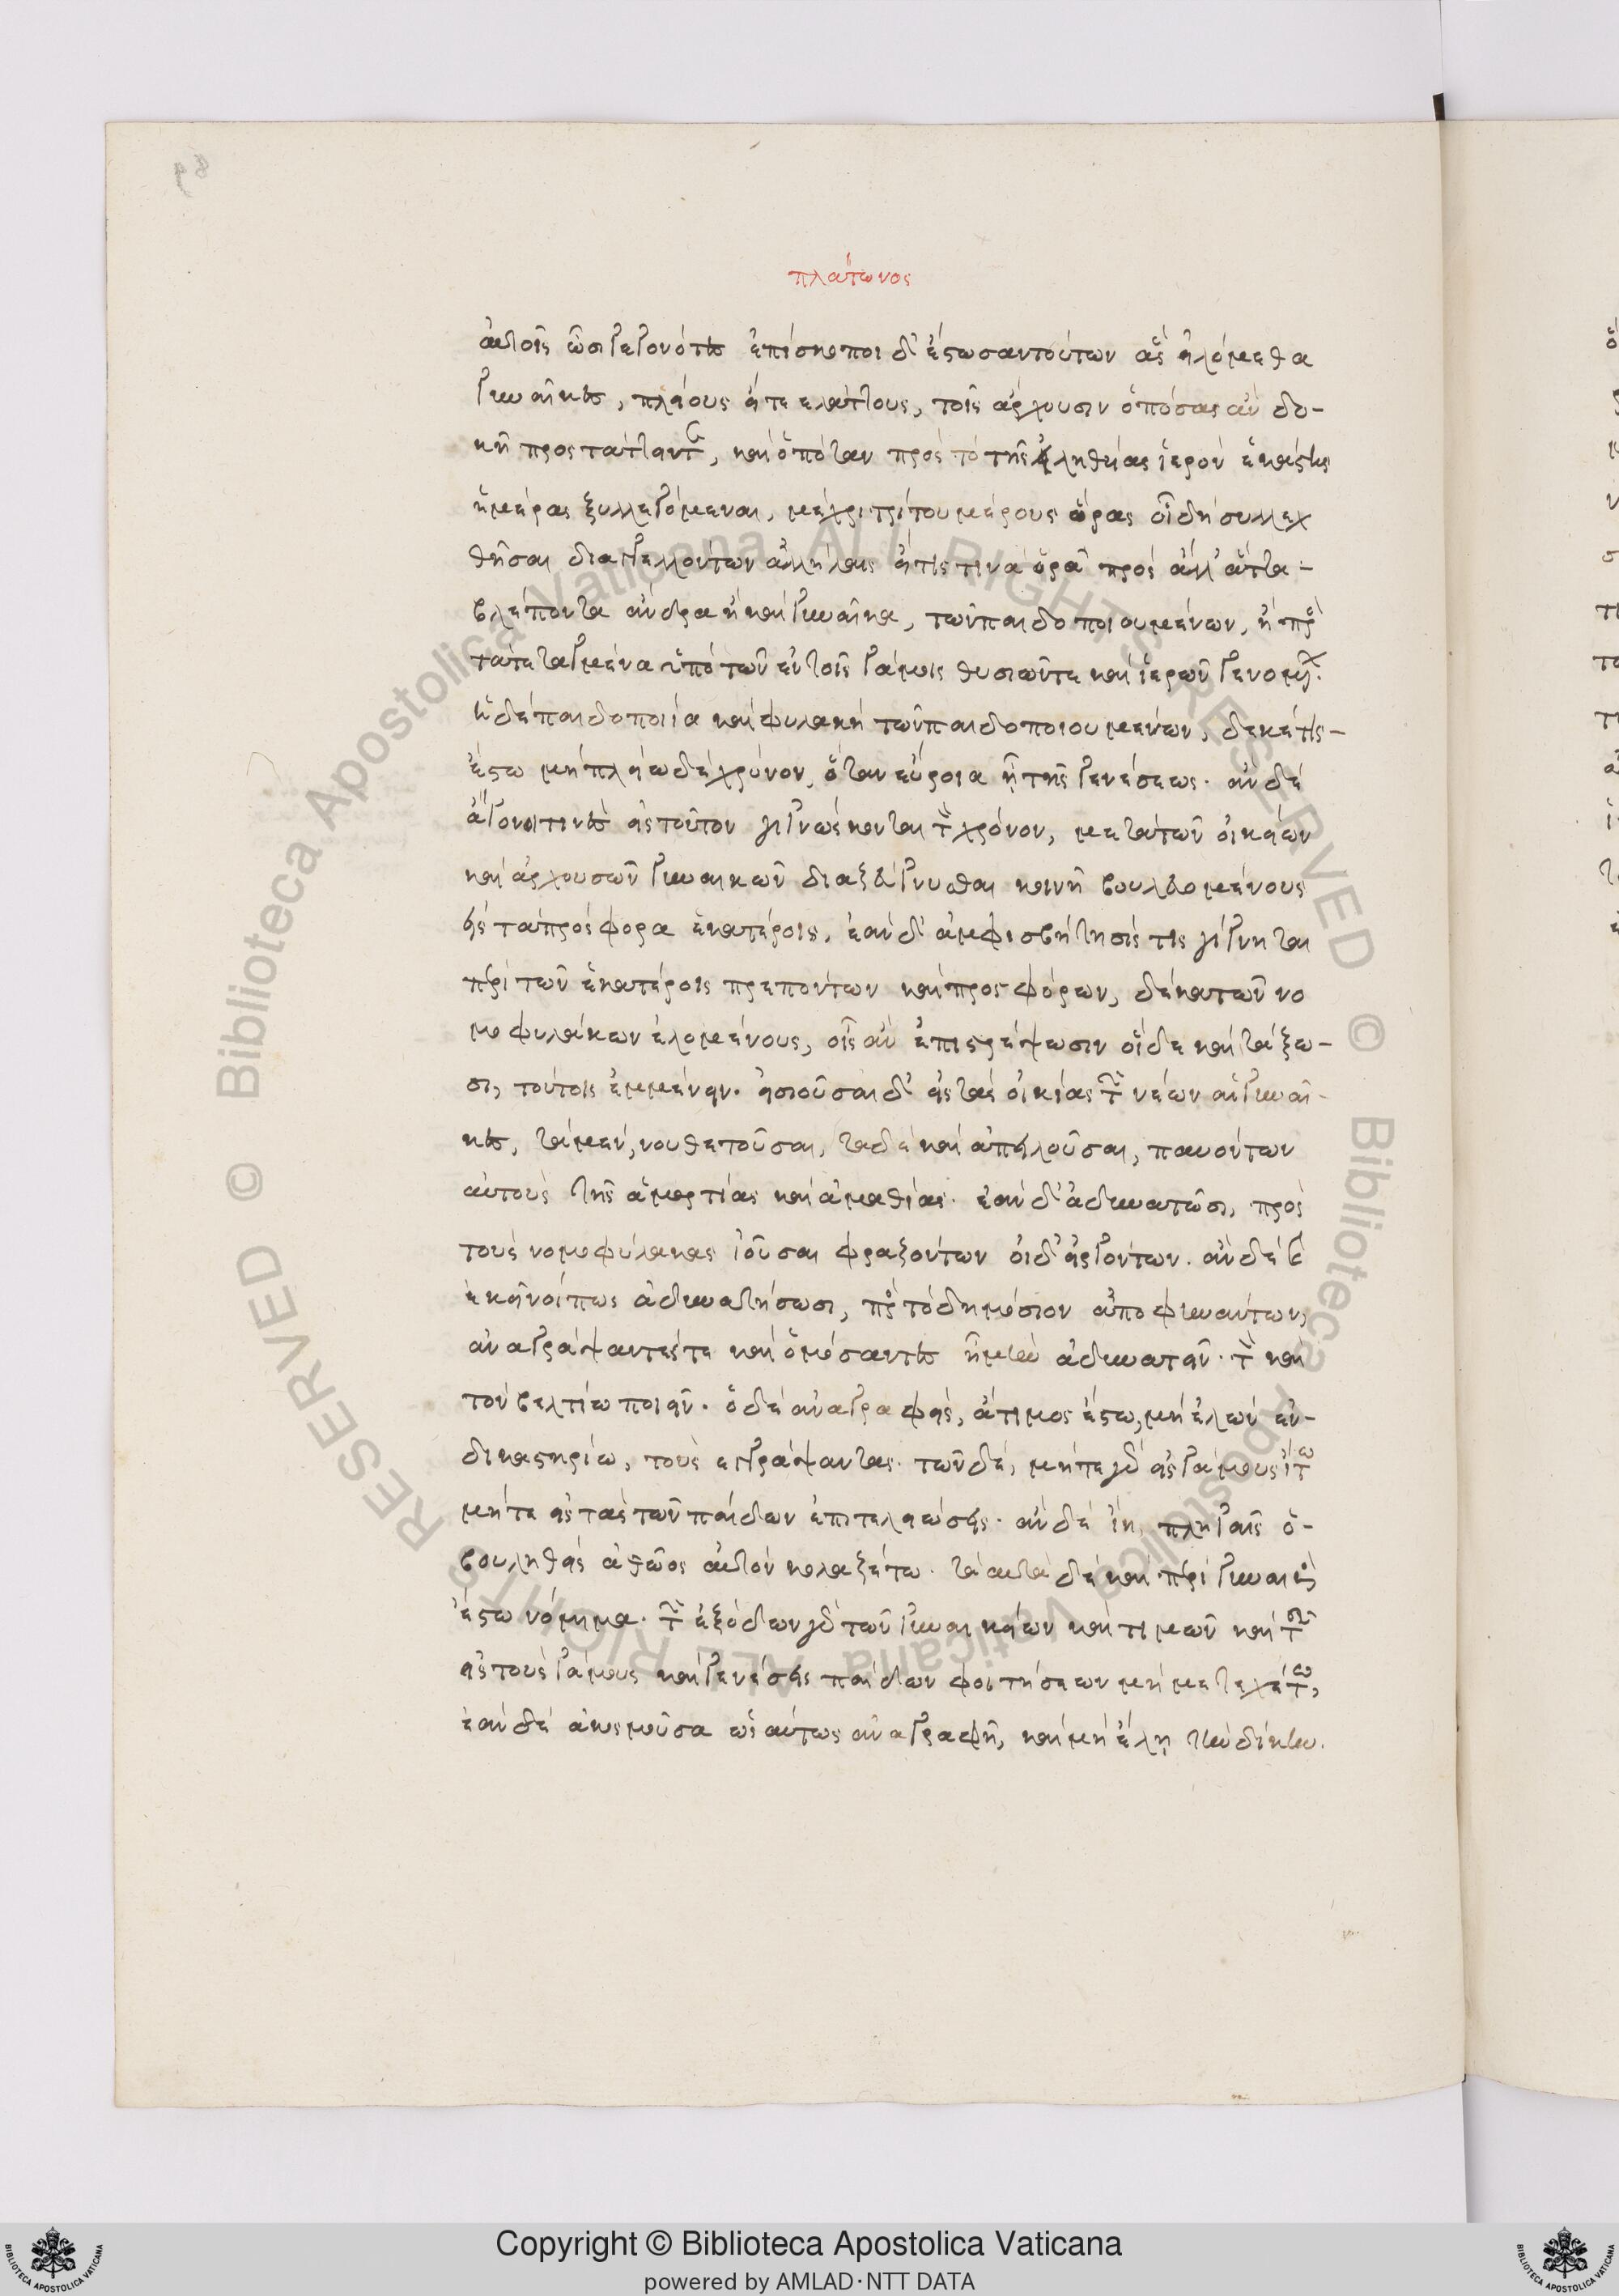 πλάτωνος
αὐτοῖς ὦσι γεγονότες ἐπίσκοποι δ' ἔστωσαν τούτων ἃς εἱλόμεθα
γυναῖκες, πλείους εἴτε ἐλάττους, τοῖς ἄρχουσιν ὁπόσας ἂν δο-
κῇ προστάττειν, καὶ ὁπόταν πρὸς τὸ τῆς εἰληθείας ἱερὸν ἑκάστης
ἡμέρας ξυλλεγόμεναι, μέχρι τρίτου μέρους ὥρας οἷ δὴ συλλεχ
θεῖσαι διαγγελλόντων ἀλλήλαις εἴ τίς τινα ὁρᾷ πρὸς ἄλλ' ἄττα -
βλέποντα ἄνδρα ἢ καὶ γυναῖκα, τῶν παιδοποιουμένων, ἢ πρὸς
τὰ τεταγμένα ὑπὸ τῶν ἐν τοῖς γάμοις θυσιῶν τε καὶ ἱερῶν γενομένων.
ἡ δὲ παιδοποιία καὶ φυλακὴ τῶν παιδοποιουμένων, δεκέτις -
ἔστω μὴ πλείω δὲ χρόνον, ὅταν εὔροια ᾖ τῆς γενέσεως. ἂν δὲ
ἄγονοί τινες εἰς τοῦτον γίγνωσκονται τὸν χρόνον, μετὰ τῶν οἰκείων
καὶ ἀρχουσῶν γυναικῶν διαζεύγνυσθαι κοινῇ βουλευομένους
εἰς τὰ πρόσφορα ἑκατέροις. ἐὰν δ' ἀμφισβήτησίς τις γίγνηται
περὶ τῶν ἑκατέροις πρεπόντων καὶ προσφόρων, δέκα τῶν νο
μοφυλάκων ἑλομένους, οἷς ἂν ἐπιτρέψωσιν οἵδε καὶ τάξω-
σι, τούτοις ἐμμένειν. εἰσιοῦσαι δ' εἰς τὰς οἰκίας τῶν νέων αἱ γυναῖ-
κες, τὰ μέν, νουθετοῦσαι, τὰ δὲ καὶ ἀπειλοῦσαι, παυόντων
αὐτοὺς τῆς ἁμαρτίας καὶ ἀμαθίας. ἐὰν δ' ἀδυνατῶσι, πρὸς
τοὺς νομοφύλακας ἰοῦσαι φραζόντων οἱ δ' εἰργόντων. ἂν δὲ καὶ
ἐκεῖνοί πως ἀδυνατήσωσι, πρὸς τὸ δημόσιον ἀποφηνάντων,
ἀναγράψαντές τε καὶ ὀμόσαντες ἦ μὴν ἀδυνατεῖν. τὸν καὶ
τὸν βελτίω ποιεῖν. ὁ δὲ ἀναγραφείς, ἄτιμος ἔστω, μὴ ἑλὼν ἐν -
δικαστηρίω, τοὺς ἐγγράψαντας. τῶνδε, μήτε γὰρ εἰς γάμους ἴτω
μήτε εἰς τὰς τῶν παίδων ἐπιτελειώσεις. ἂν δὲ ἴῃ, πληγαῖς ὁ -
βουληθεὶς ἀθῷος αὐτὸν κολαζέτω. τὰ αὐτὰ δὲ καὶ περὶ γυναικὸς
ἔστω νόμιμα. τῶν ἐξόδων γὰρ τῶν γυναικείων καὶ τιμῶν καὶ τῶν
εἰς τοὺς γάμους καὶ γενέσεις παίδων φοιτήσεων μὴ μετεχέτω,
ἐὰν δὲ ἀκοσμοῦσα ὡσαύτως ἀναγραφῇ, καὶ μὴ ἕλῃ τὴν δίκην.
Copyright © Biblioteca Apostolica Vaticana
powered by AMLAD·NTT DATA